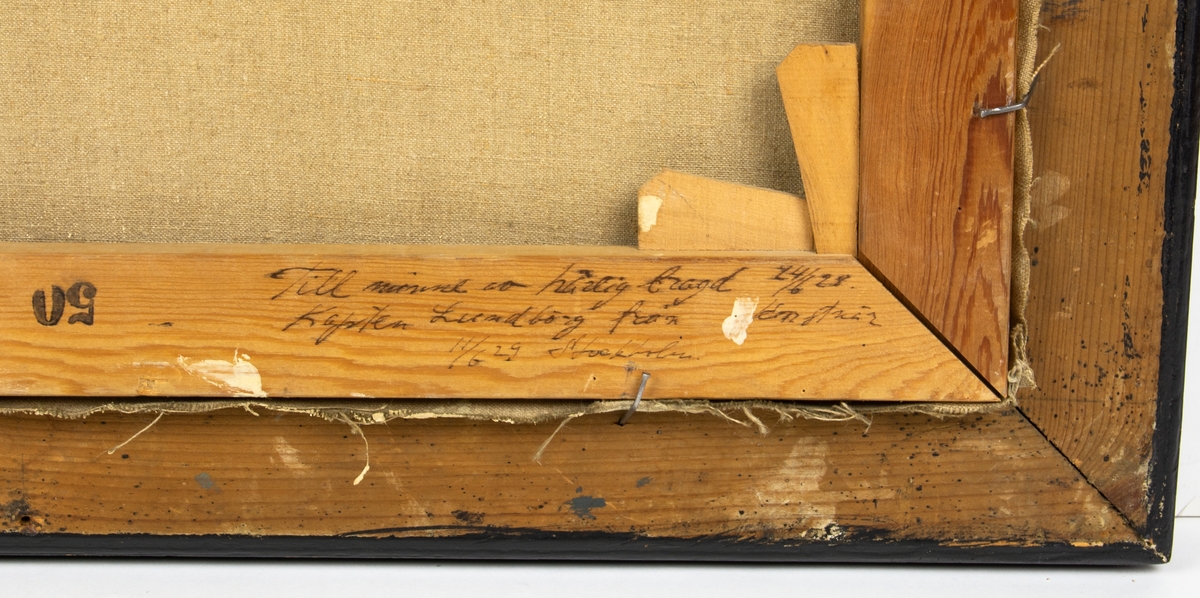 Till minne av härlig bragd 24/6 28.
Kapten Lundborg från Konstnär
11/6 29 Stockholm.
50